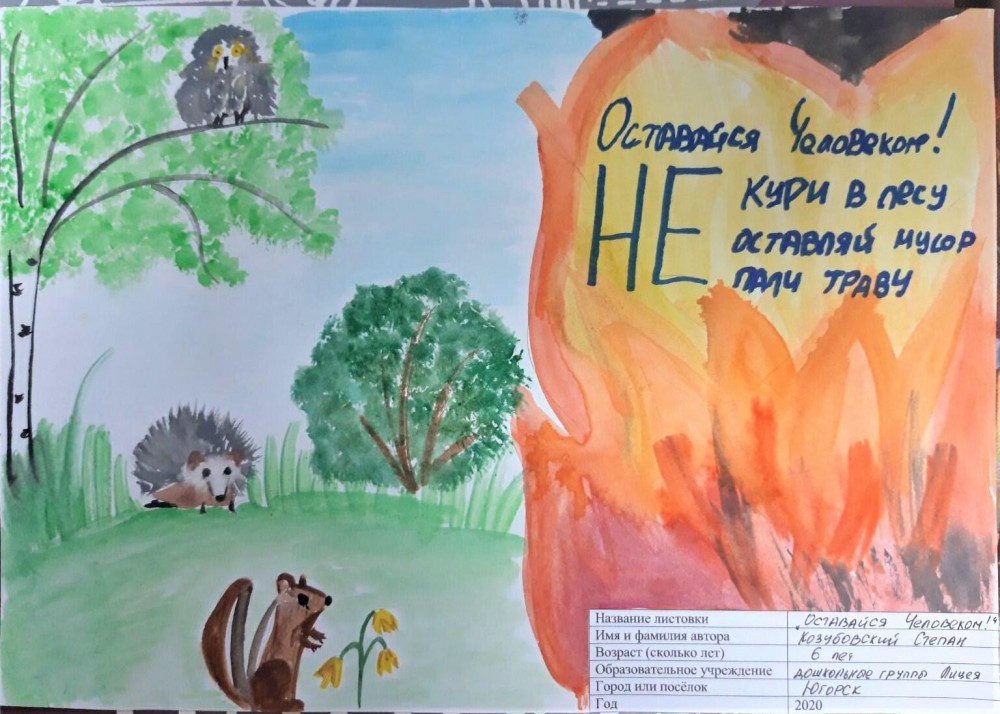 Оставайся Человеком!
НЕ
кури в лесу
оставляй мусор
пали траву
Название листовки „Оставайся Человеком!“
Имя и фамилия автора Козубовский Степан
Возраст (сколько лет) 6 лет
Образовательное учреждение дошкольное группы Лицея
Город или посёлок Югорск
Год 2020